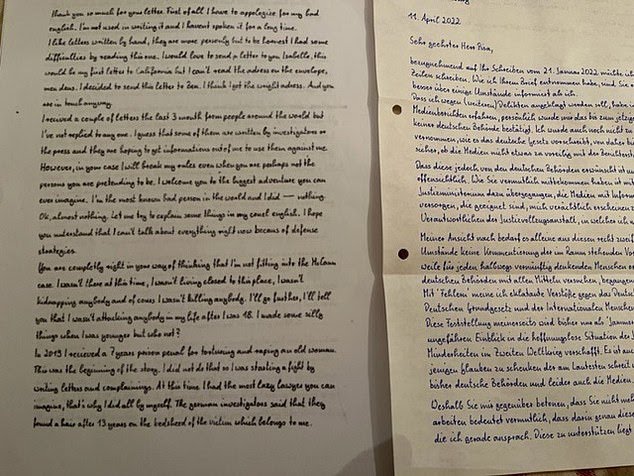 thank you so much for your letter. First of all I have to appologize for my bad
english. I'm not used in writing it and I havent spoken it for a long time.
I like letters written by hand, they are more personly but to be honest I had some
difficulties by reading this one. I would love to send a letter to you Isabelle, this
would be my first letter to California but I can't read the adress on the envelope,
I decided to send this letter to Ben. I think I got the wright adress. And you
are in touch anyway.
I recived a couple of letters the last 3 month from people around the world but
I've not replied to any one. I guess that some of them are written by investigators or
the press and they are hoping to get informations out of me to use them against me.
However, in your case I will break my rules even when you are perhaps not the
persons you are pretending to be. I welcome you to the biggest adventure you can
ever imagine. I'm the most known bad person in the world and I did — nothing.
Ok, almost nothing. Let me try to explain some things in my cruel english. I hope
you understand that I can't talk about everything right now becaus of defense
strategies.
You are completly right in your way of thinking that I'm not fitting into the McCann
case. I wasn't there at this time, I wasn't living closed to this place, I wasn't
kidnapping anybody and of cours I wasn't killing anybody. I'll go further, I'll tell
you that I wasn't attacking anybody in my life after I was 18. I made some silly
things when I was younger but who not?
In 2019 I recieved a 7 years prison penalt for torturing and raping an old woman.
This was the beginning of the story. I did not do that so I was starting a fight by
writing letters and complainings. At this time I had the most lazy lawyer you can
imagine, that's why I did all by myself. The german investigators said that they
found a hair after 13 years on the bedsheed of the victim which belongs to me.
11. April 2022
Sehr geehrter Herr
bezugnehmend auf Ihr Schreiben vom 21. Januar 2022 möchte ich
Zeilen schreiben. Wie ich Ihrem Brief entnommen habe, sind Sie
besser über einige Umstände informiert als ich.
Dass ich wegen (weiterer) Delikten angeklagt werden soll, habe
Medienberichten erfahren, persönlich wurde mir das bis zum jetzig
keiner deutschen Behörde bestätigt. Ich wurde auch noch nicht zu
vernommen, wie es das deutsche Gesetz vorschreibt, von daher bi
sicher, ob die Medien nicht etwa zu voreilig mit der Berichterst
Dass diese jedoch von den deutschen Behörden erwünscht ist un
offensichtlich. Wie Sie vermutlich mitbekommen haben ist mit
Justizministerium dazu übergegangen, die Medien mit Inform
versorgen, die geeignet sind, mich verächtlich erscheinen z
Verantwortlichen der Justizvollzugsanstalt, in welcher ich
Meiner Ansicht nach bedarf es alleine aus diesen recht zweif
Umstände keine Kommentierung der im Raum stehenden Vor
weil für jeden halbwegs vernünftig denkenden Menschen
deutschen Behörden mit allen Mitteln versuchen, begangen
Mit 'Fehlern' meine ich eklatante Verstöße gegen das Deut
Deutschen Grundgesetz und der Internationalen Menschen
Diese Feststellung meinerseits wird bisher nur als 'Jammer
ungefähren Einblick in die hoffnungslose Situation der J
Minderheiten im Zweiten Weltkrieg verschafft. Es ist au
jenigen glauben zu schenken der am lautesten schreit
bisher deutsche Behörden und leider auch die Medien.
Deshalb Sie mir gegenüber betonen, dass Sie nicht meh
arbeiten bedeutet vermutlich, dass darin genau diese
die ich gerade ansprach. Diese zu unterstützen liegt